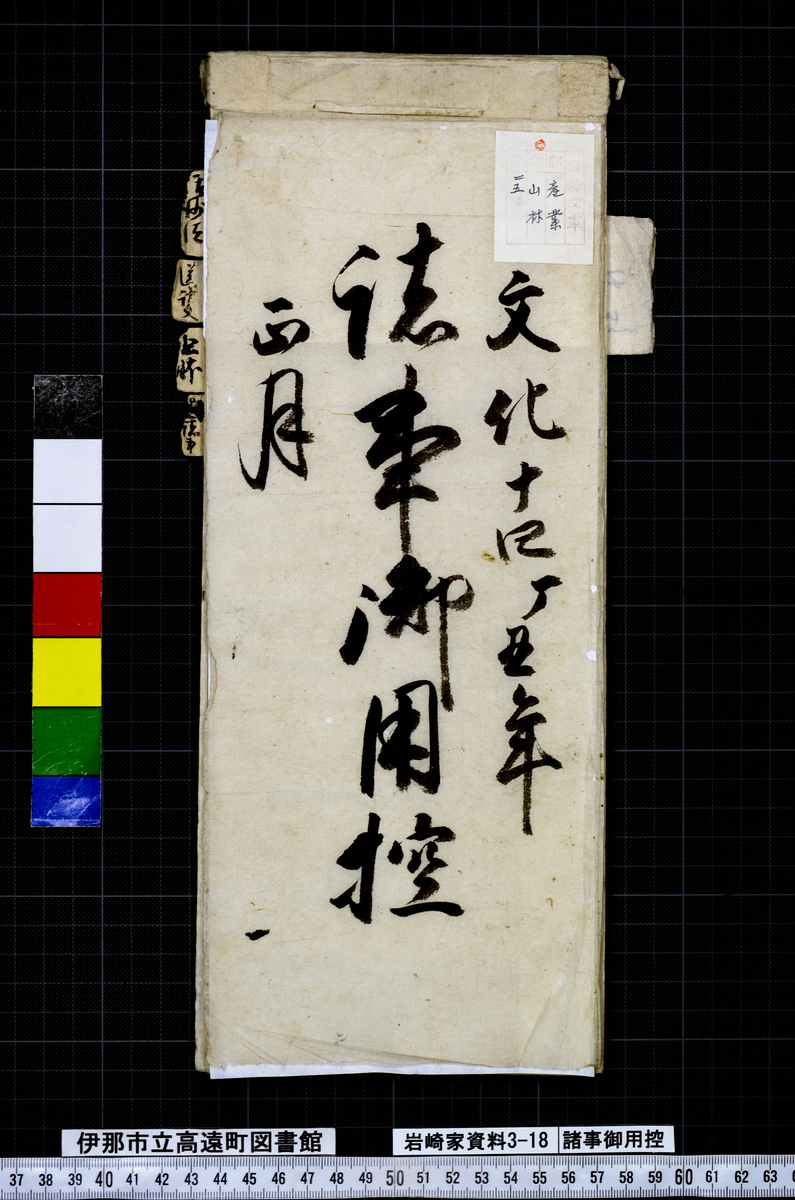 産業
山林
二五
文化十四丁丑年
諸事御用控
正月
伊那市立高遠町図書館
岩崎家資料3-18
諸事御用控
37 38 39 40 41 42 43 44 45 46 47 48 49 50 51 52 53 54 55 56 57 58 59 60 61 62 63